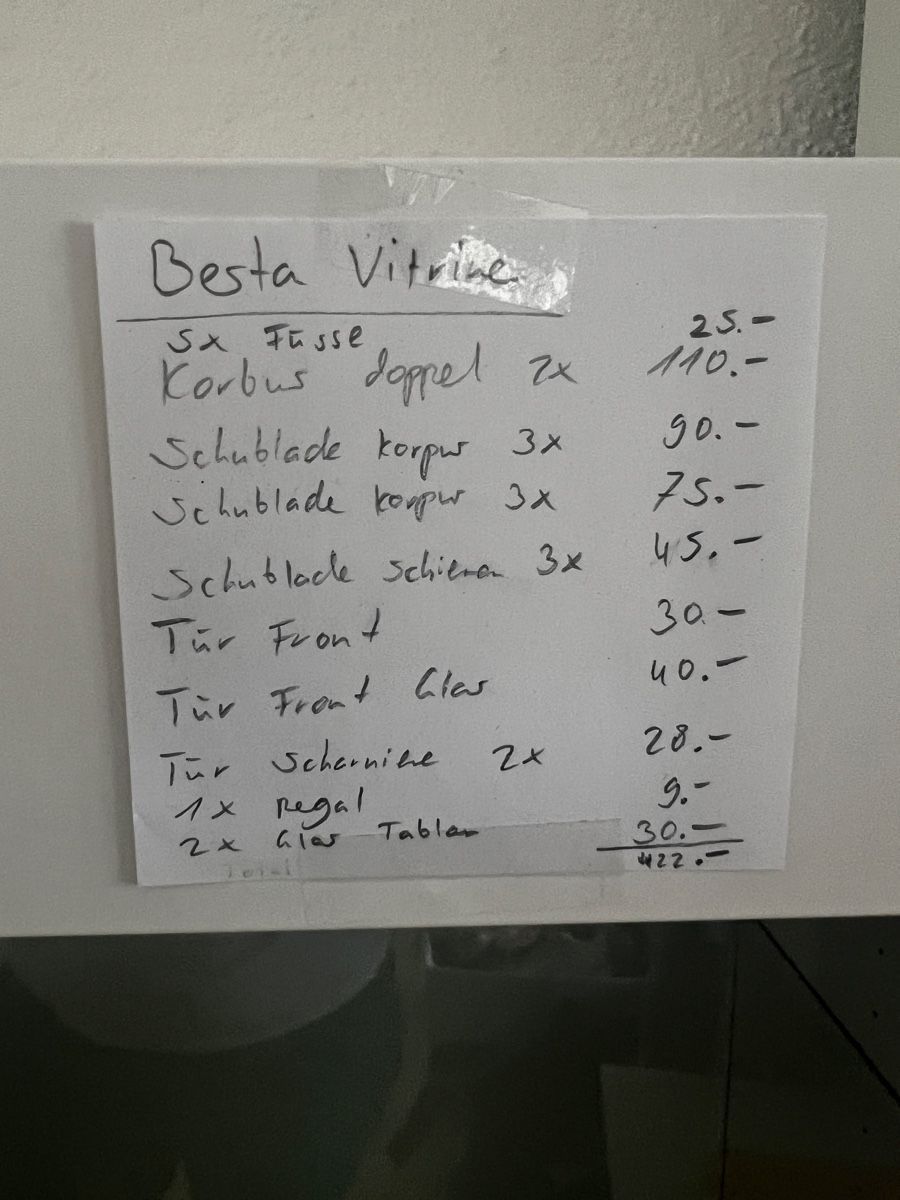 Besta Vitrine
5x Füsse 25.-
Korbus doppel 2x 110.-
Schublade korpur 3x 90.-
Schublade korpur 3x 75.-
Schublade schienen 3x 45.-
Tür Front 30.-
Tür Front Glas 40.-
Tür Scharniere 2x 28.-
1x Regal 9.-
2x Glas Tablar 30.-
422.-
Total